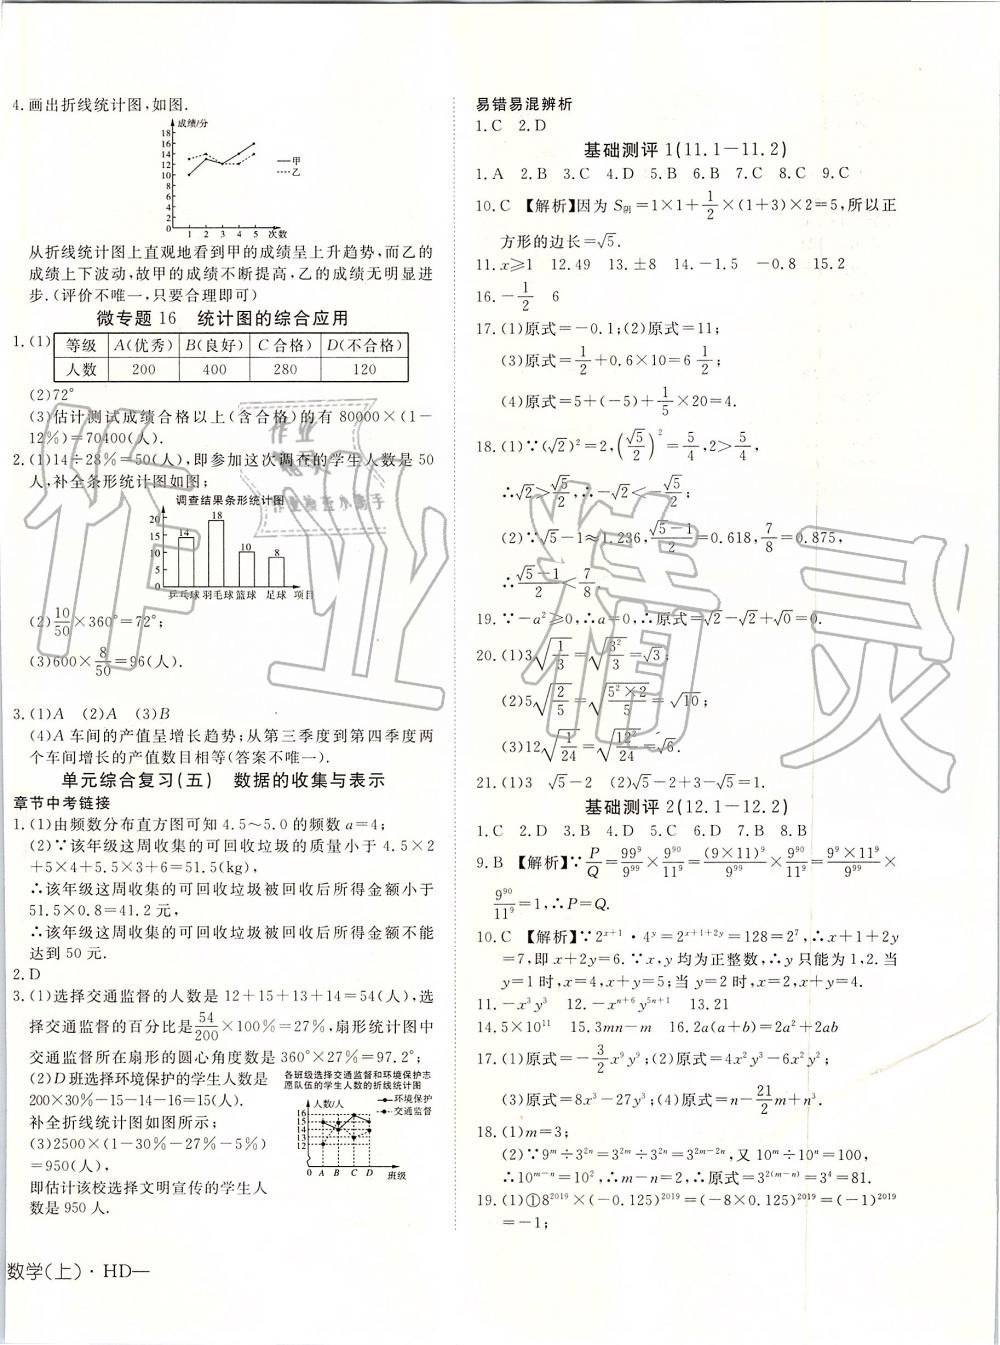 4.画出折线统计图,如图.
成绩/分
18
16
14
12
10
8
6
4
2
0 1 2 3 4 5 次数
甲
乙
从折线统计图上直观地看到甲的成绩呈上升趋势,而乙的
成绩上下波动,故甲的成绩不断提高,乙的成绩无明显进
步.(评价不唯一,只要合理即可)
微专题 16 统计图的综合应用
1.(1)
等级 A(优秀) B(良好) C 合格) D(不合格)
人数 200 400 280 120
(2)72°
(3)估计测试成绩合格以上(含合格)的有 80000×(1-
12%)=70400(人).
2.(1)14÷28%=50(人),即参加这次调查的学生人数是 50
人,补全条形统计图如图;
调查结果条形统计图
20
15
10
5
0
14 18 10 8
乒乓球 羽毛球 篮球 足球 项目
(2)10/50×360°=72°;
(3)600×8/50=96(人).
3.(1)A (2)A (3)B
(4)A 车间的产值呈增长趋势;从第三季度到第四季度两
个车间增长的产值数目相等(答案不唯一).
单元综合复习(五) 数据的收集与表示
章节中考链接
1.(1)由频数分布直方图可知 4.5～5.0 的频数 a=4;
(2)∵该年级这周收集的可回收垃圾的质量小于 4.5×2
+5×4+5.5×3+6=51.5(kg),
∴该年级这周收集的可回收垃圾被回收后所得金额小于
51.5×0.8=41.2 元,
∴该年级这周收集的可回收垃圾被回收后所得金额不能
达到 50 元.
2.D
3.(1)选择交通监督的人数是 12+15+13+14=54(人),选
择交通监督的百分比是54/200×100%=27%,扇形统计图中
交通监督所在扇形的圆心角度数是 360°×27%=97.2°;
(2)D班选择环境保护的学生人数是
200×30%-15-14-16=15(人).
补全折线统计图如图所示;
(3)2500×(1-30%-27%-5%)
=950(人),
即估计该校选择文明宣传的学生人
数是 950 人.
各班级选择交通监督和环境保护志
愿队伍的学生人数的折线统计图
人数/人
环境保护
交通监督
16
15
14
13
12
0 A B C D 班级
数学(上)·HD—
易错易混辨析
1.C 2.D
基础测评 1(11.1-11.2)
1.A 2.B 3.C 4.D 5.B 6.B 7.C 8.C 9.C
10.C 【解析】因为 S阴=1×1+1/2×(1+3)×2=5,所以正
方形的边长=√5.
11.x≥1 12.49 13.±8 14.-1.5 -0.8 15.2
16.-1/2 6
17.(1)原式=-0.1;(2)原式=11;
(3)原式=1/2+0.6×10=6 1/2;
(4)原式=5+(-5)+1/5×20=4.
18.(1)∵(√2)²=2,(√5/2)²=5/4,2>5/4,
∴√2>√5/2,∴-√2<-√5/2;
(2)∵√5-1≈1.236,(√5-1)/2=0.618,7/8=0.875,
∴(√5-1)/2<7/8
19.∵-a²≥0,∴a=0,∴原式=√2-√2+√0=0.
20.(1)3√(1/3)=√(3²/3)=√3;
(2)5√(2/5)=√(5²×2/5)=√10;
(3)12√(1/24)=√(12²/24)=√6.
21.(1)3 √5-2 (2)√5-2+3-√5=1.
基础测评 2(12.1-12.2)
1.C 2.D 3.B 4.D 5.C 6.D 7.B 8.B
9.B 【解析】∵P/Q=99⁹/9⁹⁹×9⁹⁰/11⁹=(9×11)⁹/9⁹⁹×9⁹⁰/11⁹=9⁹×11⁹/9⁹⁹×
9⁹⁰/11⁹=1,∴P=Q.
10.C 【解析】∵2ˣ⁺¹·4ʸ=2ˣ⁺¹⁺²ʸ=128=2⁷,∴x+1+2y
=7,即 x+2y=6.∵x,y 均为正整数,∴y 只能为 1,2.当
y=1 时,x=4,x+y=5;当 y=2 时,x=2,x+y=4.
11.-x³y³ 12.-xⁿ⁺⁶y⁵ⁿ⁺¹ 13.21
14.5×10¹¹ 15.3mn-m 16.2a(a+b)=2a²+2ab
17.(1)原式=-3/2x⁹y⁹;(2)原式=4x²y³-6x²y²;
(3)原式=8x³-27y³;(4)原式=n-21/2m+n³.
18.(1)m=3;
(2)∵9ᵐ÷3²ⁿ=3²ᵐ÷3²ⁿ=3²ᵐ⁻²ⁿ,又 10ᵐ÷10ⁿ=100,
∴10ᵐ⁻ⁿ=10²,∴m-n=2,∴原式=3²⁽ᵐ⁻ⁿ⁾=3⁴=81.
19.(1)①8²⁰¹⁹×(-0.125)²⁰¹⁹=(-8×0.125)²⁰¹⁹=(-1)²⁰¹⁹
=-1;
作业精灵